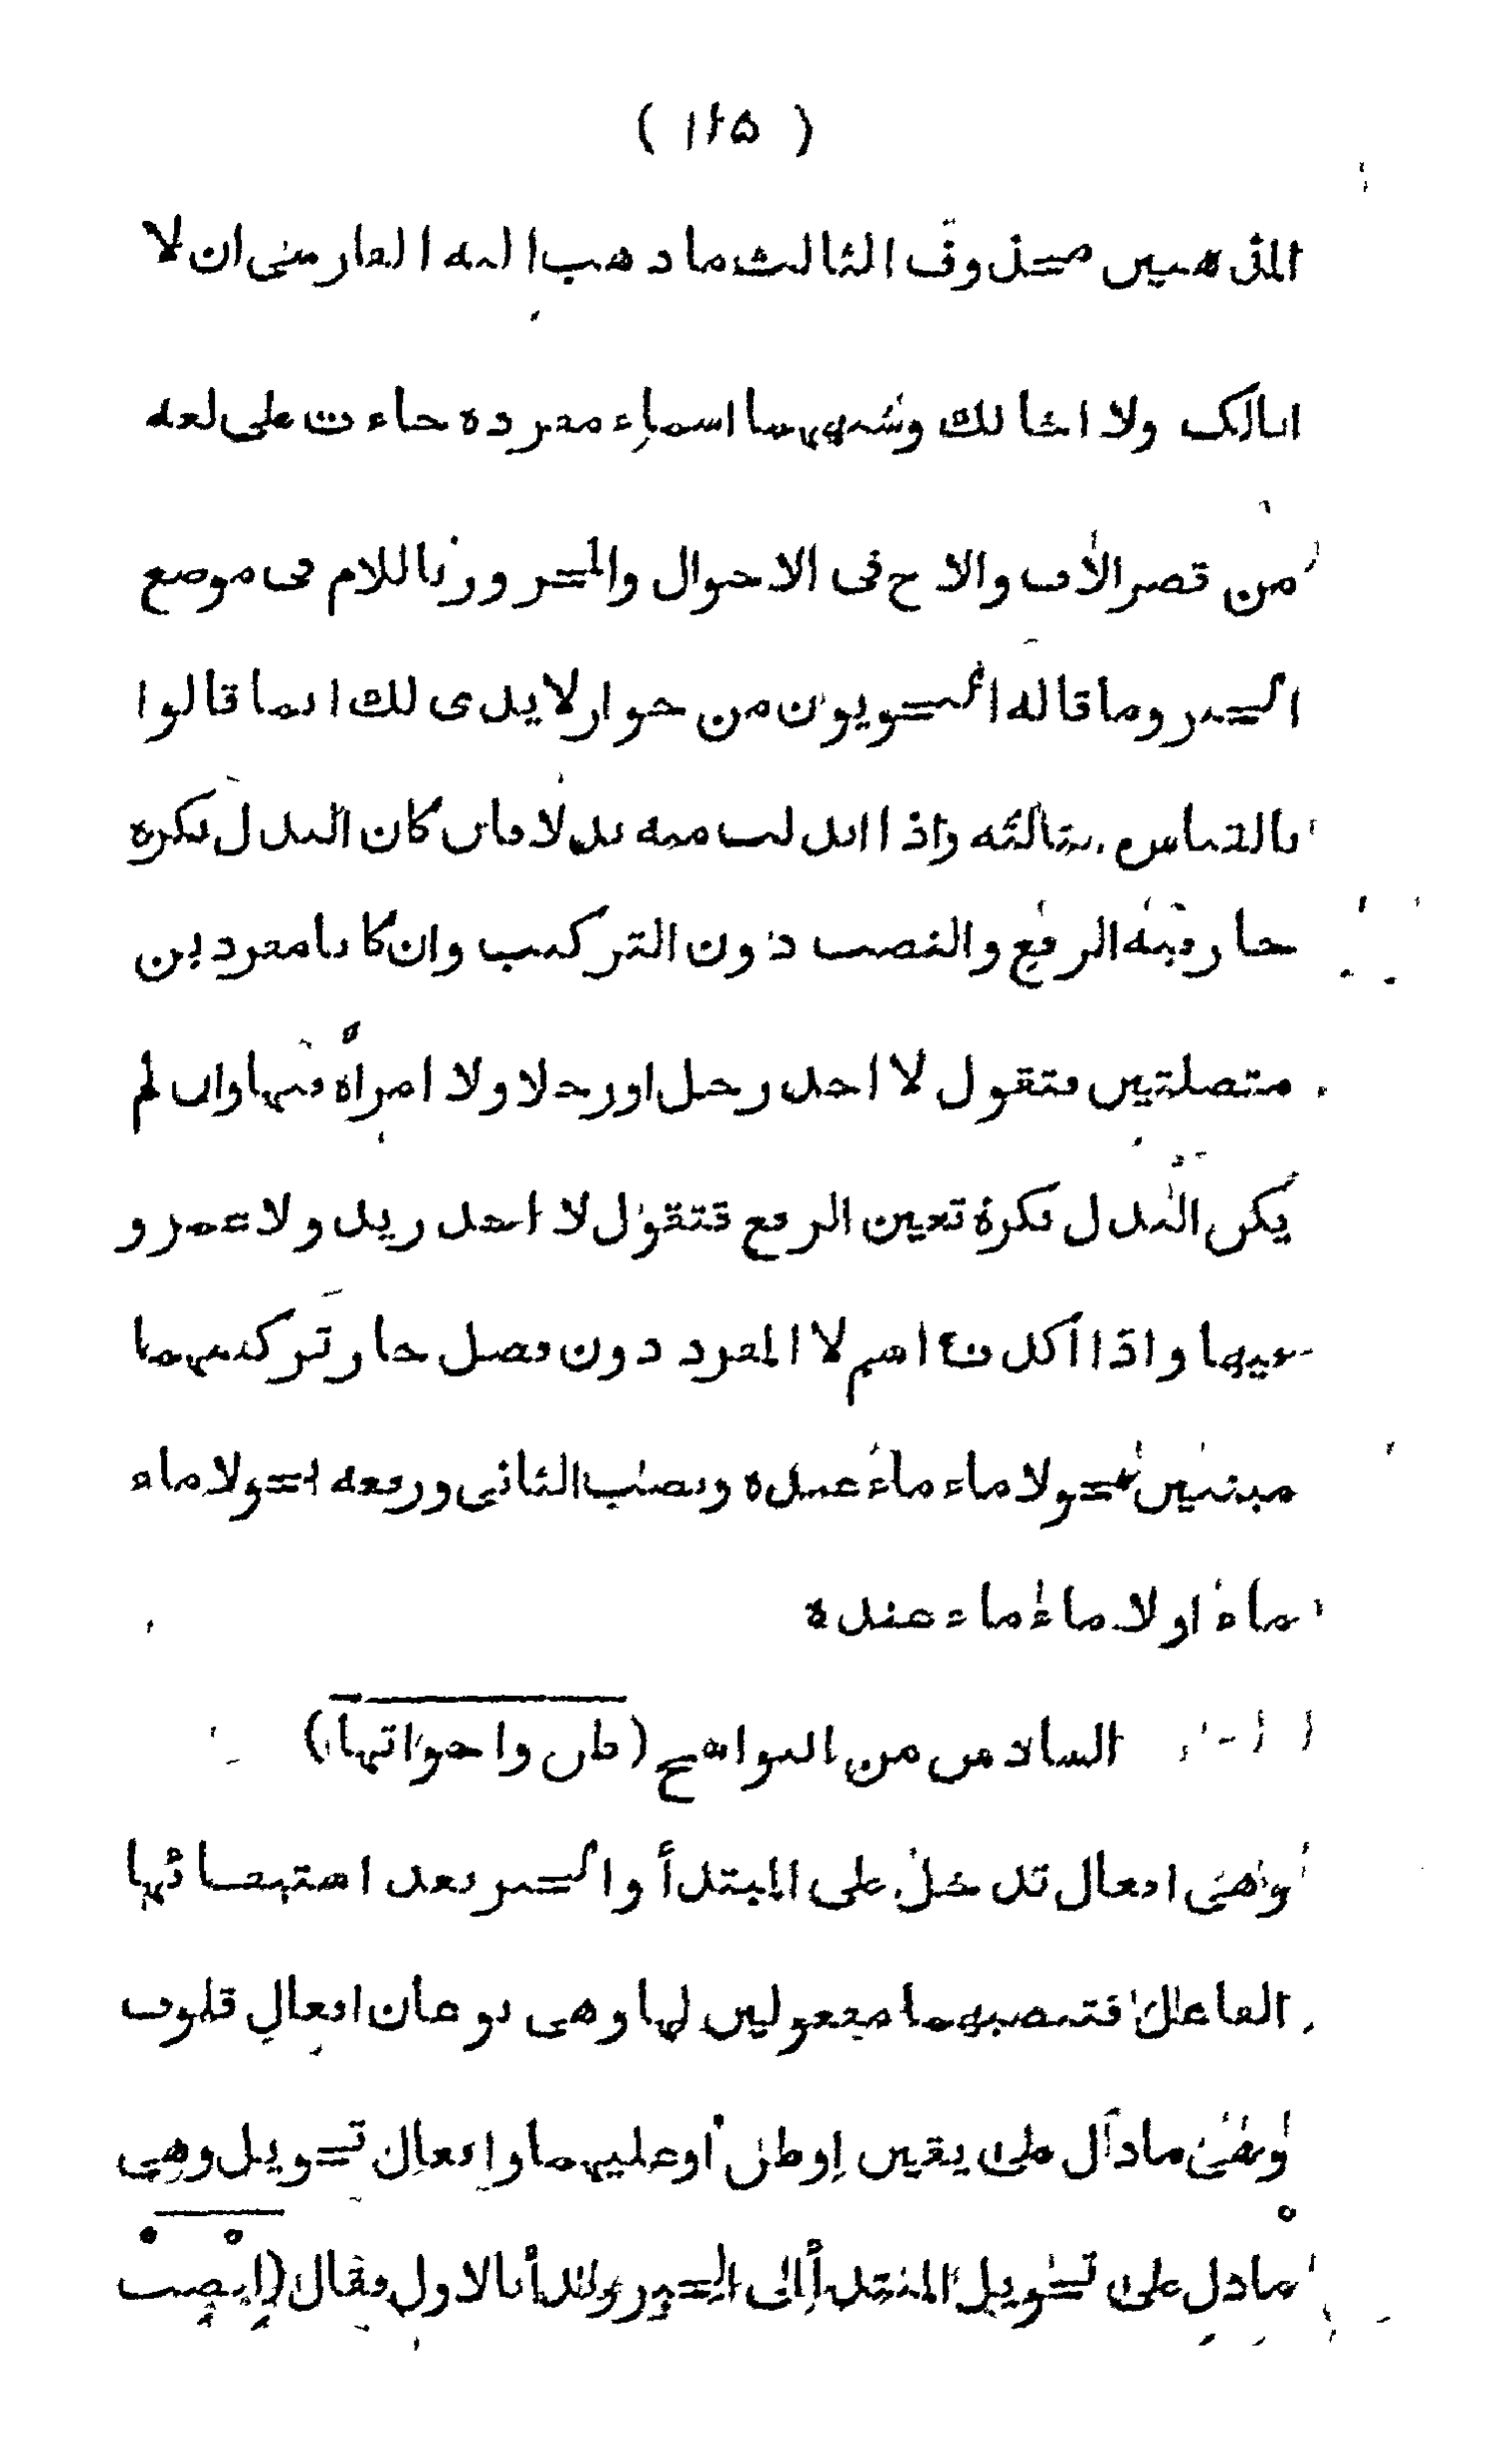 ( ١٢٥ )
المذهبين محذوف الثالث ما ذهب اليه الفارسى ان لا
ابالك ولا اخا لك وشبههما اسماء مفردة جاءت على لغة
من قصر الاب والاخ فى الاحوال والمجرور باللام فى موضع
الخبر وما قاله النحويون من جواز لا يدى لك انما قالوا
بالقياس واذا ابدلت منه بدلا فان كان البدل نكرة
جاز فيه الرفع والنصب دون التركيب وان كانا مفردين
متصلتين فتقول لا احد رجل او رجلا ولا امرأة فيها وان لم
يكن البدل نكرة تعين الرفع فتقول لا احد زيد ولا عمرو
فيها واذا اكدت اسم لا المفرد دون فصل جاز تركيبهما
مبنيين نحو لا ماء ماء عنده ونصب الثانى ورفعه نحو لا ماء
ماء او لا ماء ماء عنده
السادس من النواسخ (ظن واخواتها)
وهى افعال تدخل على المبتدأ والخبر بعد استيفائها
الفاعل فتنصبهما مفعولين لها وهى نوعان افعال قلوب
وهى ما دل على يقين او ظن او عليهما وافعال تحويل وهى
ما دل على تحويل المبتدأ الى الخبر وبدأ بالاول فقال (انصب